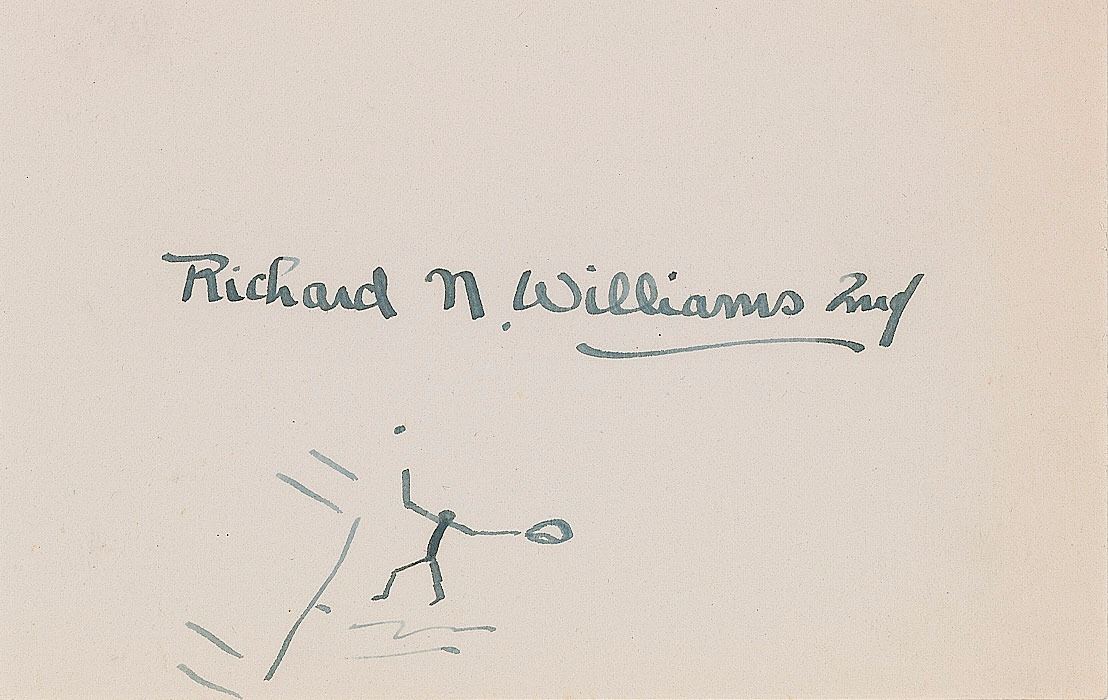 Richard N. Williams 2nd